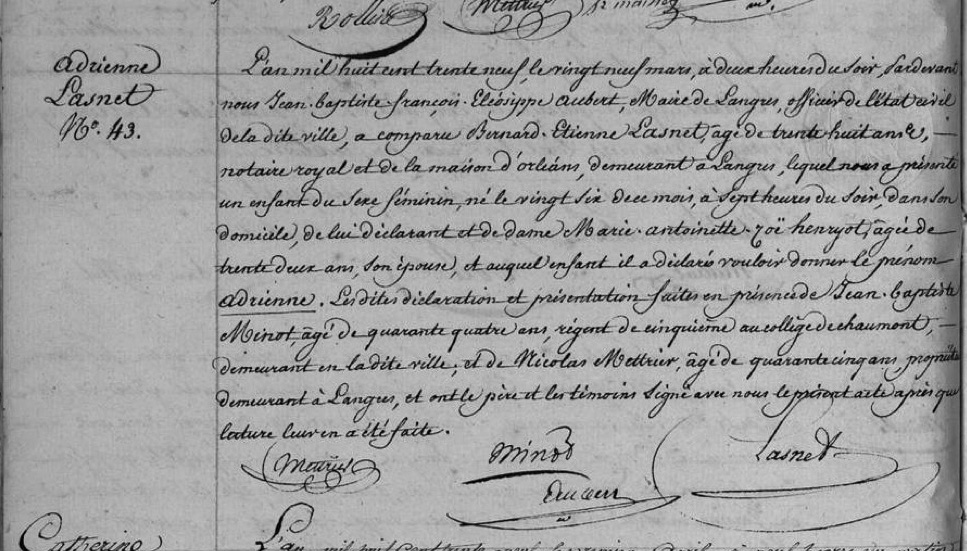 Rollin
Mettrier
Adrienne
Lasnet
N.º 43.
L'an mil huit cent trente neuf, le vingt neuf mars, à deux heures du soir, Pardevant
nous Jean-Baptiste-françois-Eléosippe Aubert, Maire de Langres, officier de l'état civil
de la dite ville, a comparu Bernard-Etienne Lasnet, âgé de trente huit ans, —
notaire royal et de la maison d'orléans, demeurant à Langres, lequel nous a présenté
un enfant du sexe féminin, né le vingt six de ce mois, à sept heures du soir, dans son
domicile, de lui déclarant et de dame Marie-antoinette-zoë henryot, âgée de
trente deux ans, son épouse, et auquel enfant il a déclaré vouloir donner le prénom
adrienne. Lesdites déclaration et présentation faites en présence de Jean-baptiste
Minot, âgé de quarante quatre ans, régent de cinquième au collège de chaumont, —
demeurant en la dite ville; et de Nicolas Mettrier, âgé de quarante cinq ans, propriéte
demeurant à Langres, et ont le père et les témoins signé avec nous le présent acte après que
lecture leur en a été faite.
Mettrier
Minot
Lasnet
Aubert
Catherine
L'an mil huit cent trente neuf, le